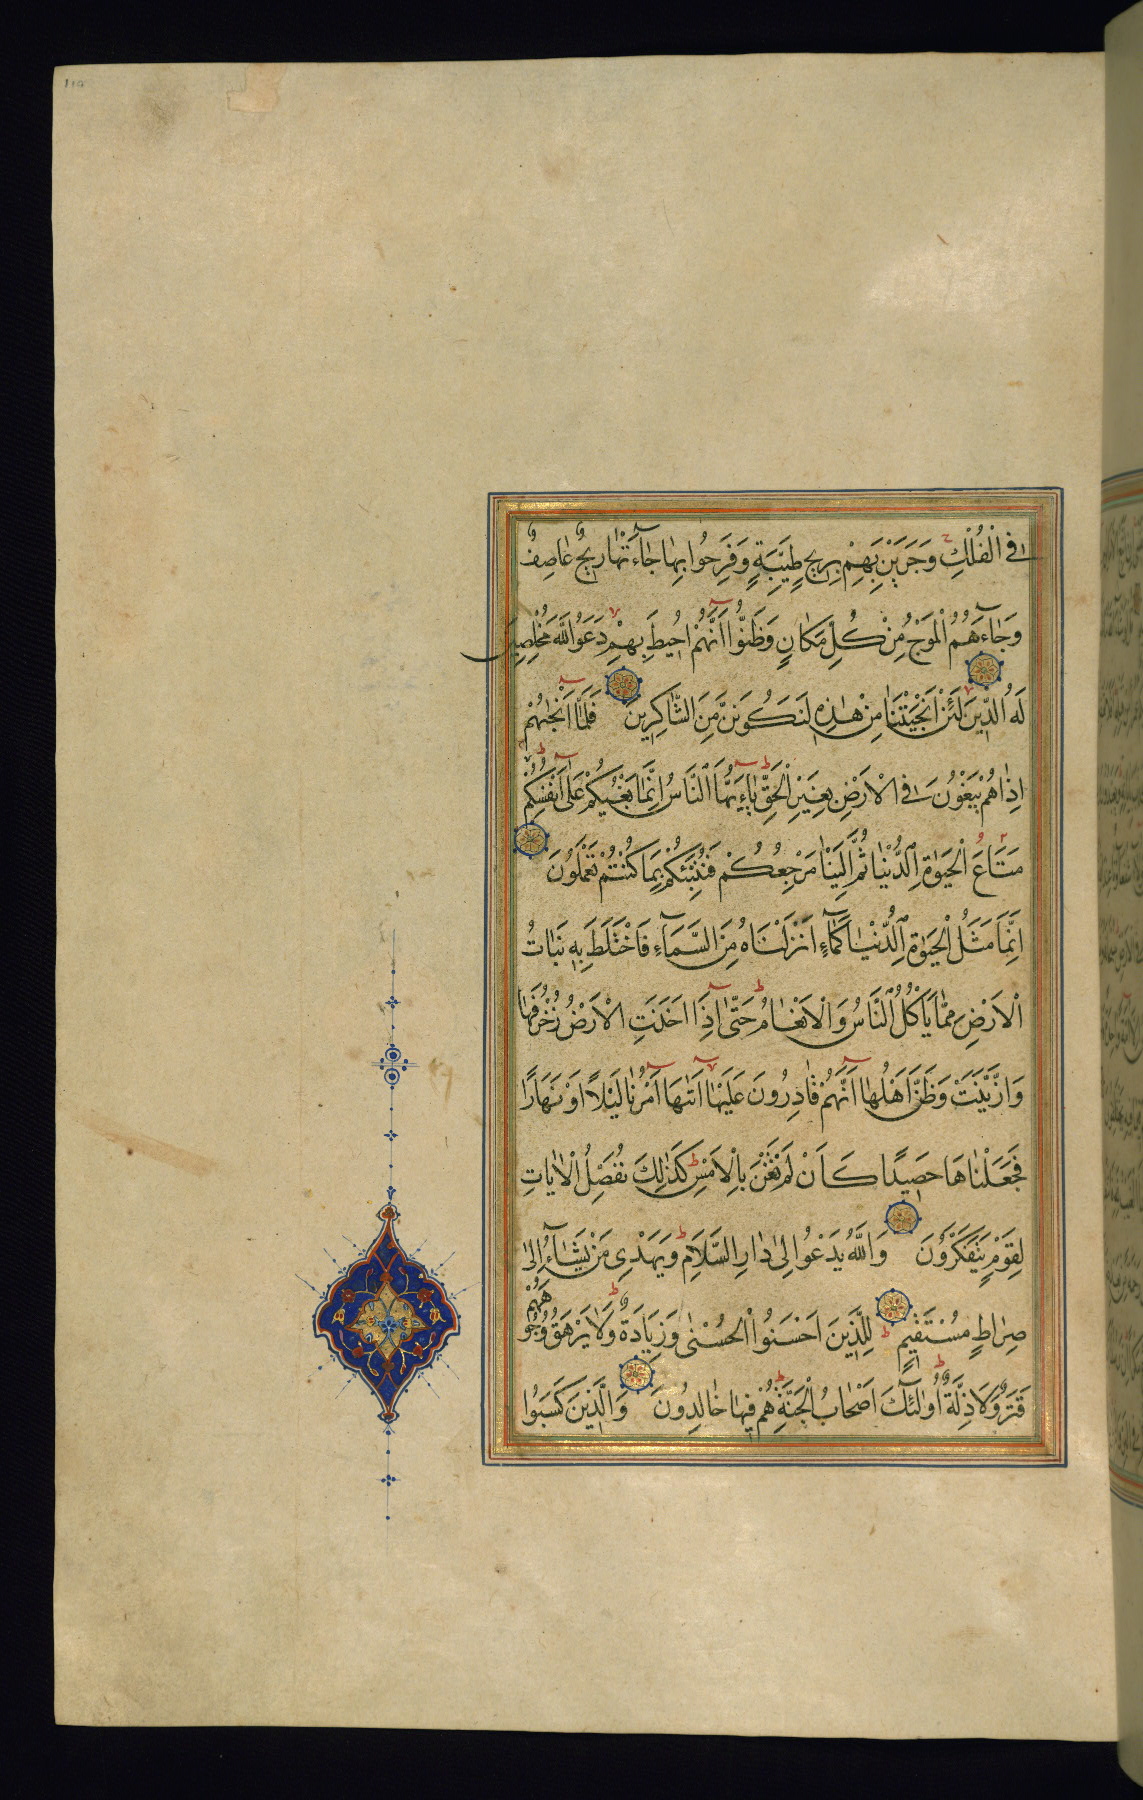 فِى الْفُلْكِ وَجَرَيْنَ بِهِمْ بِرِيحٍ طَيِّبَةٍ وَفَرِحُوا بِهَا جَاءَتْهَا رِيحٌ عَاصِفٌ
وَجَاءَهُمُ الْمَوْجُ مِنْ كُلِّ مَكَانٍ وَظَنُّوا أَنَّهُمْ أُحِيطَ بِهِمْ دَعَوُا اللَّهَ مُخْلِصِينَ
لَهُ الدِّينَ لَئِنْ أَنْجَيْتَنَا مِنْ هٰذِهِ لَنَكُونَنَّ مِنَ الشَّاكِرِينَ فَلَمَّا أَنْجٰيهُمْ
إِذَا هُمْ يَبْغُونَ فِى الْأَرْضِ بِغَيْرِ الْحَقِّ يَا أَيُّهَا النَّاسُ إِنَّمَا بَغْيُكُمْ عَلَى أَنْفُسِكُمْ
مَتَاعَ الْحَيٰوةِ الدُّنْيَا ثُمَّ إِلَيْنَا مَرْجِعُكُمْ فَنُنَبِّئُكُمْ بِمَا كُنْتُمْ تَعْمَلُونَ
إِنَّمَا مَثَلُ الْحَيٰوةِ الدُّنْيَا كَمَاءٍ أَنْزَلْنَاهُ مِنَ السَّمَاءِ فَاخْتَلَطَ بِهِ نَبَاتُ
الْأَرْضِ مِمَّا يَأْكُلُ النَّاسُ وَالْأَنْعَامُ حَتَّى إِذَا أَخَذَتِ الْأَرْضُ زُخْرُفَهَا
وَازَّيَّنَتْ وَظَنَّ أَهْلُهَا أَنَّهُمْ قَادِرُونَ عَلَيْهَا أَتٰيهَا أَمْرُنَا لَيْلًا أَوْ نَهَارًا
فَجَعَلْنَاهَا حَصِيدًا كَأَنْ لَمْ تَغْنَ بِالْأَمْسِ كَذٰلِكَ نُفَصِّلُ الْاٰيَاتِ
لِقَوْمٍ يَتَفَكَّرُونَ وَاللَّهُ يَدْعُوا إِلٰى دَارِ السَّلَامِ وَيَهْدِى مَنْ يَشَاءُ إِلٰى
صِرَاطٍ مُسْتَقِيمٍ لِلَّذِينَ أَحْسَنُوا الْحُسْنٰى وَزِيَادَةٌ وَلَا يَرْهَقُ وُجُوهَهُمْ
قَتَرٌ وَلَا ذِلَّةٌ أُولٰئِكَ أَصْحَابُ الْجَنَّةِ هُمْ فِيهَا خَالِدُونَ وَالَّذِينَ كَسَبُوا